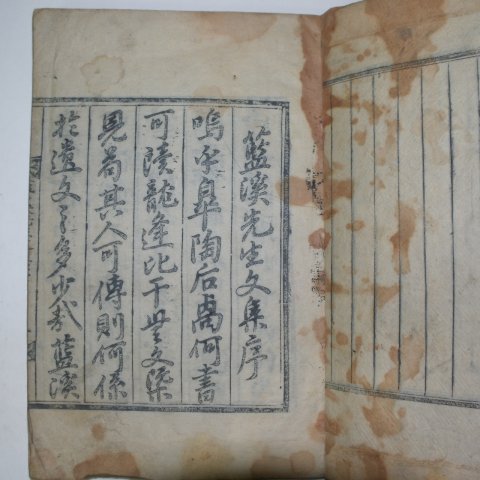 藍溪先生文集序
嗚乎皐陶后卨何書
可讀龍逄比干無文染
見苟其人可傳則何係
於遺文之多少哉藍溪